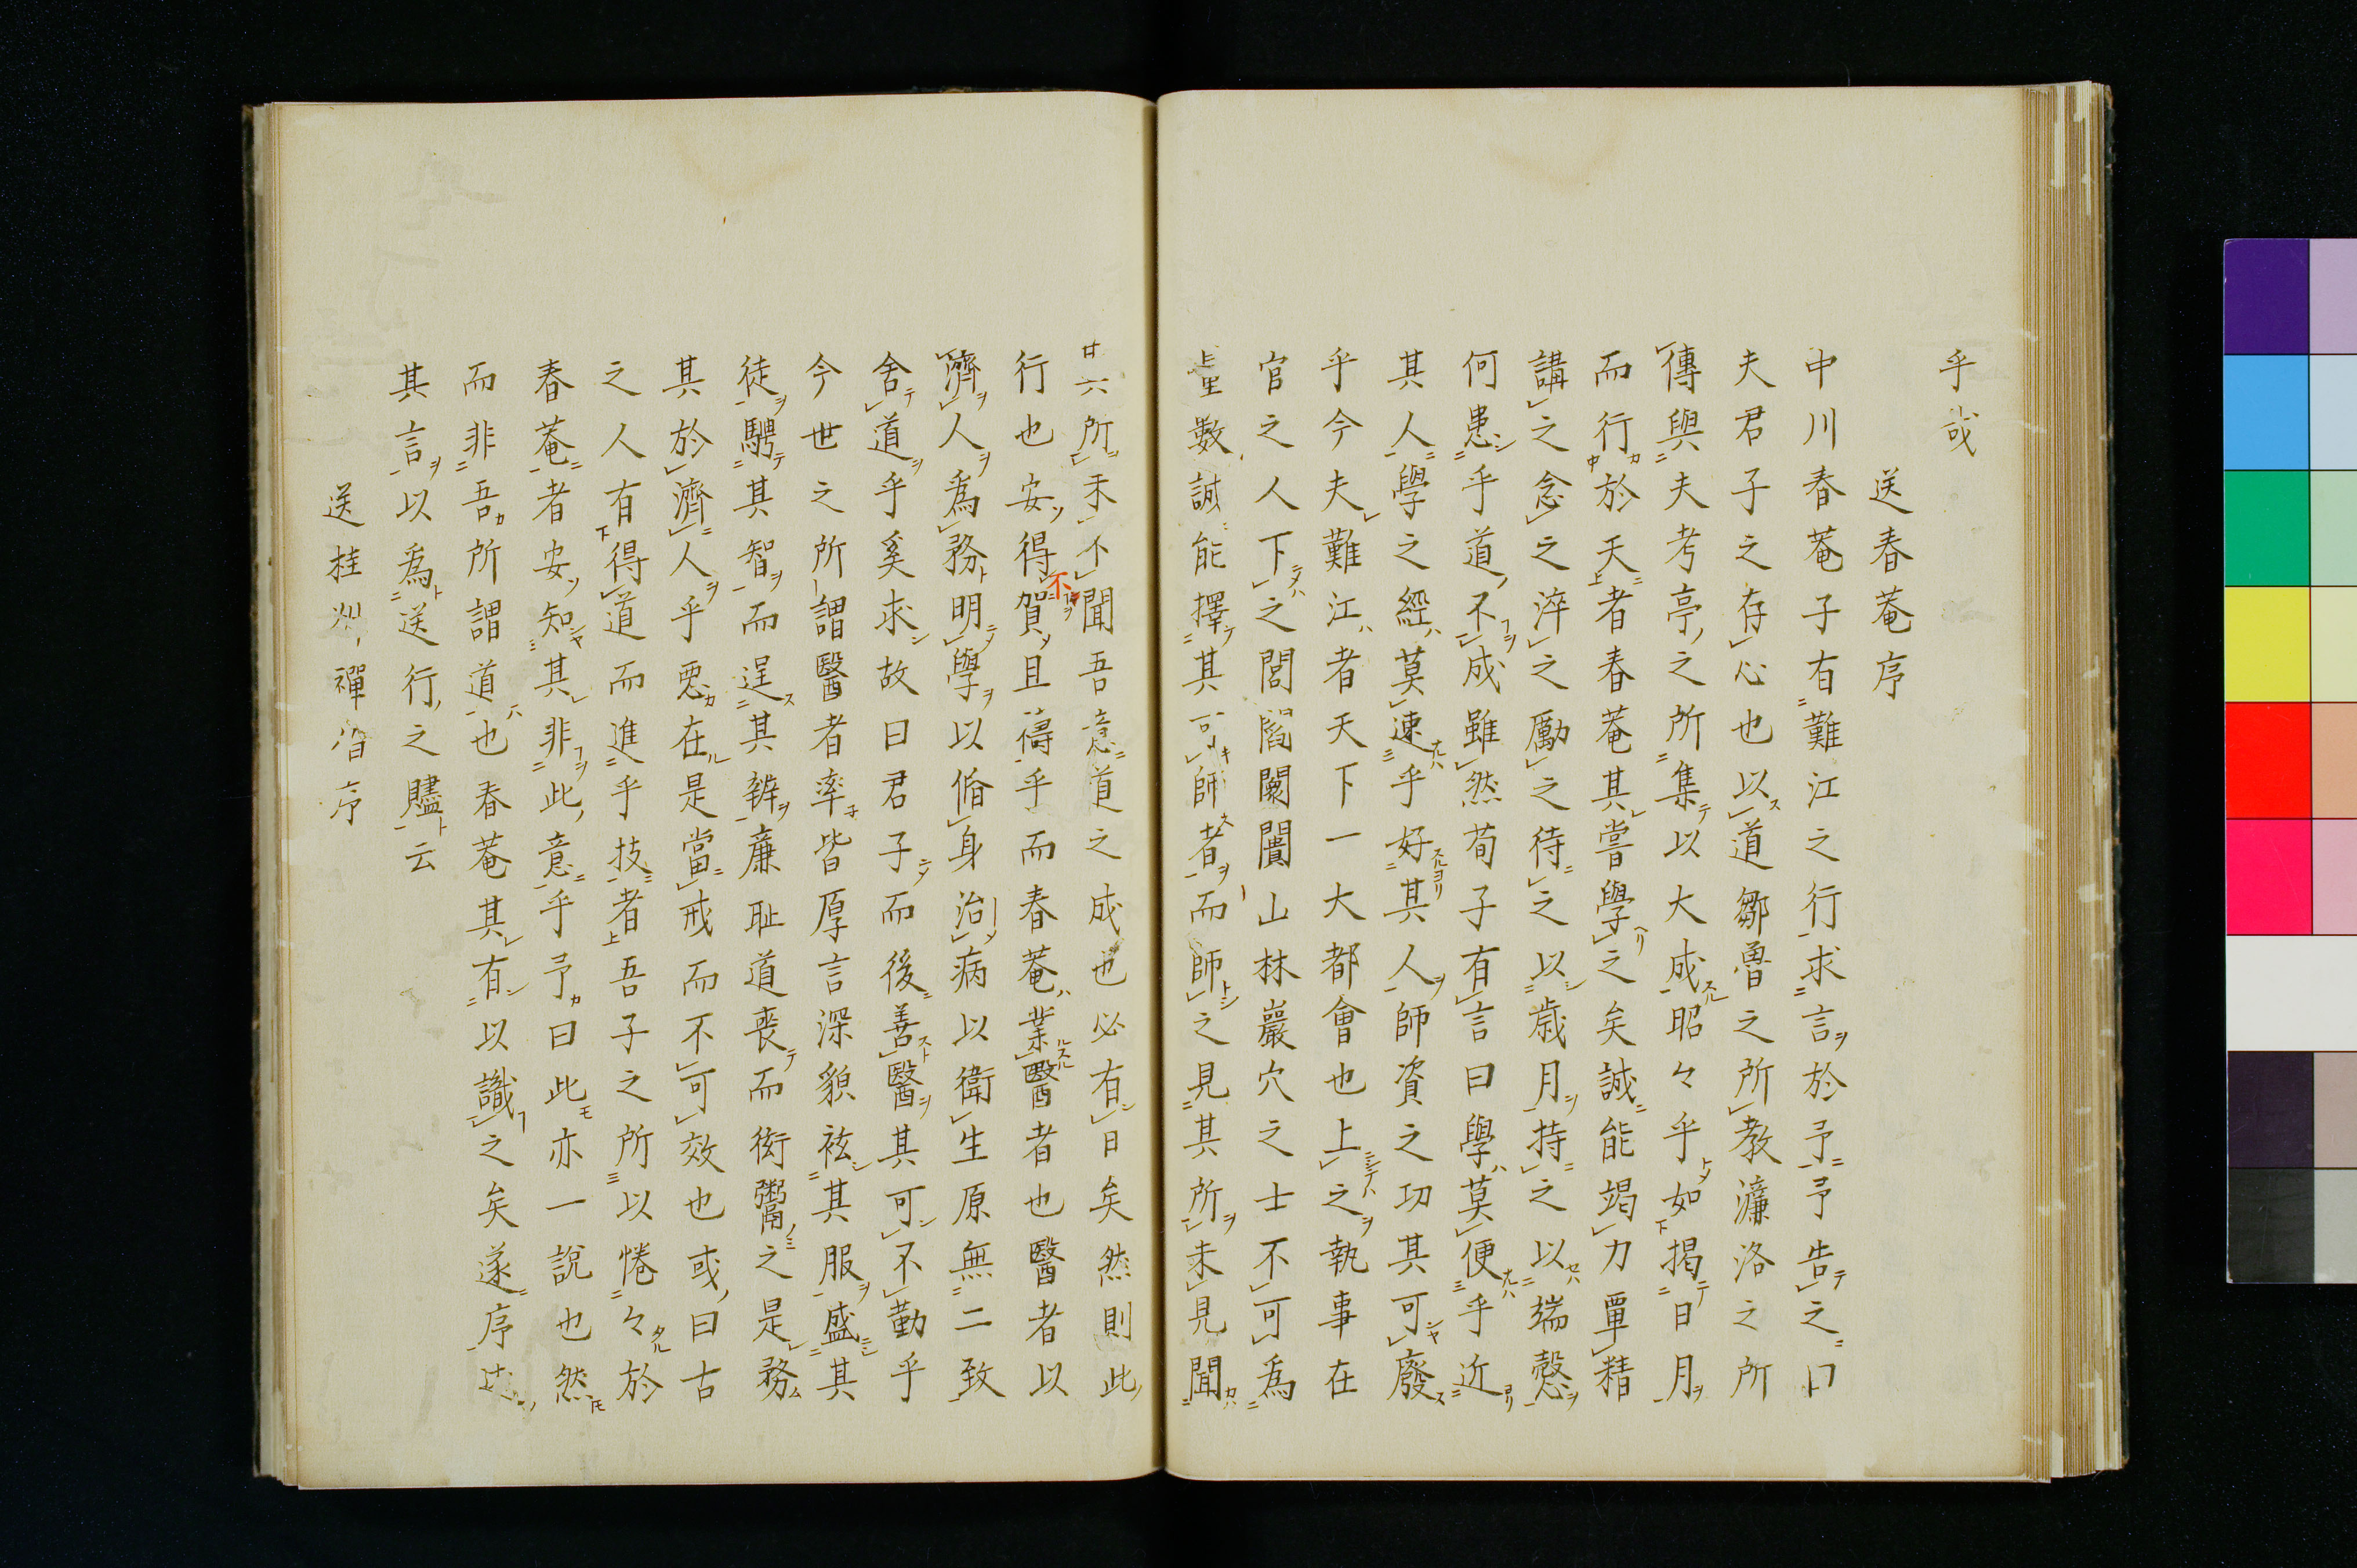 乎哉
送春菴序
中川春菴子有難江之行求言於予予告之曰
夫君子之存心也以道鄒魯之所教濂洛之所
傳與夫考亭之所集以大成昭々乎如揭日月
而行於天者春菴其嘗學之矣誠能竭力覃精
講之念之淬之勵之待之以歳月持之以端愨
何患乎道不成雖然荀子有言曰學莫便乎近
其人學之經莫速乎好其人師資之功其可廢
乎今夫難江者天下一大都會也上之執事在
官之人下之閭閻闤闠山林巖穴之士不可為
數誠能擇其可師者而師之見其所未見聞
其所未聞吾意道之成也必有日矣然則此
行也安得不賀且禱乎而春菴業醫者也醫者以
濟人爲務明學以脩身治病以衛生原無二致
舍道乎奚求故曰君子而後善醫其可不勤乎
今世之所謂醫者率皆厚言深貌袨其服盛其
徒騁其智而逞其辨廉恥道喪而衒鬻之是務
其於濟人乎惡在是當戒而不可效也或曰古
之人有得道而進乎技者吾子之所以惓々於
春菴者安知其非此意乎予曰此亦一說也然
而非吾所謂道也春菴其有以識之矣遂序
其言以爲送行之贐云
送桂 禪 序